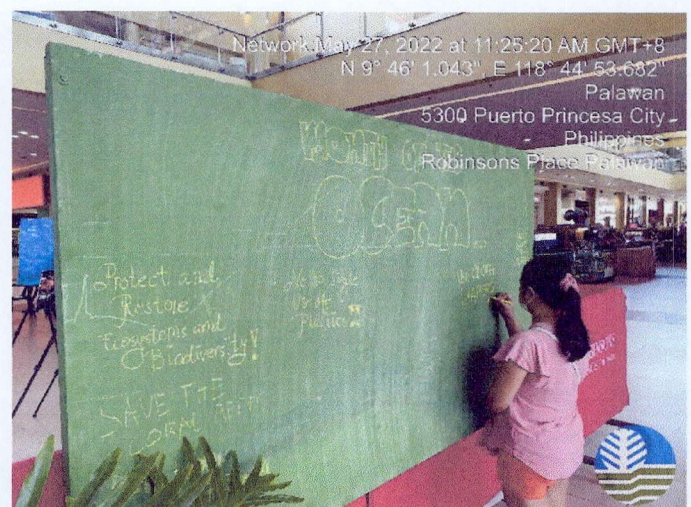 Network: May 27, 2022 at 11:25:20 AM GMT+8
N 9° 46' 1.043", E 118° 44' 53.682"
Palawan
5300 Puerto Princesa City
Philippines
Robinsons Place Palawan
MONTH OF THE
OCEAN
Protect and
Restore
Ecosystems and
Biodiversity!
No to Single
Use of
Plastics
SAVE THE
CORAL REEF